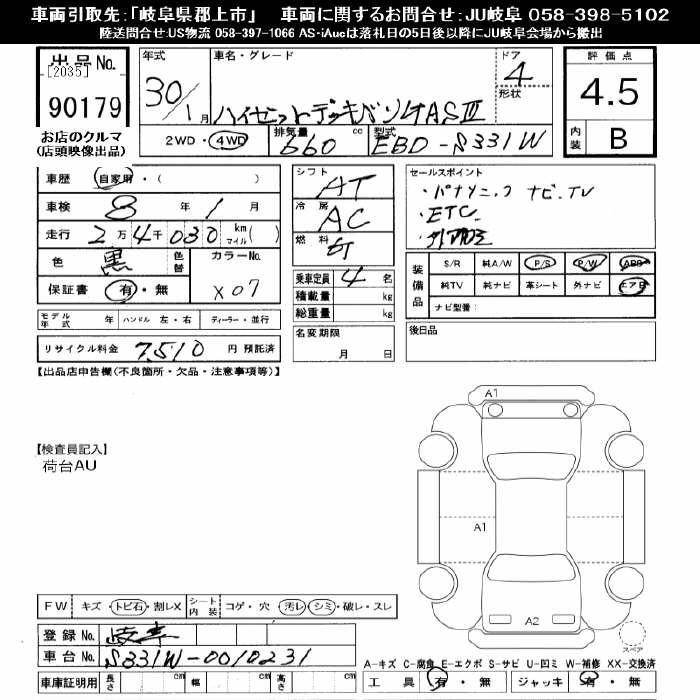 車両引取先:「岐阜県郡上市」　車両に関するお問合せ:JU岐阜 058-398-5102
陸送問合せ:US物流 058-397-1066 AS-iAucは落札日の5日後以降にJU岐阜会場から搬出
出品No.
[2035]
90179
お店のクルマ
(店頭映像出品)
年式
30/1月
車名・グレード
ハイゼットデッキバン
SAⅢ
ドア
4
形状
評価点
4.5
内装
B
2WD・4WD
排気量
660 cc
型式
EBD-S331W
車歴 自家用・( )
車検 8年 1月
走行 2万4千030 km マイル( )
色 黒 色替
カラーNo.
X07
保証書 有・無
モデル年式 年 ハンドル 左・右 ディーラー・並行
リサイクル料金 7510 円 預託済
シフト AT
冷房 AC
燃料
乗車定員 4 名
積載量 kg
総重量 kg
名変期限
月 日
セールスポイント
・パナソニック ナビ.TV
・ETC
装備品
S/R 純A/W P/S P/W ABS
純TV 純ナビ 革シート 外ナビ エアB
ナビ型番:
後日品
【出品店申告欄(不良箇所・欠品・注意事項等)】
【検査員記入】
荷台AU
A1
A1
A2
スペア
FW キズ・トビ石・割レX シート内装 コゲ・穴 汚レ・シミ・破レ・スレ
登録No. 岐阜
車台No. S331W-0010231
車庫証明用 長さ cm 幅 cm 高さ cm
A-キズ C-腐食 E-エクボ S-サビ U-凹ミ W-補修 XX-交換済
工具 有・無 ジャッキ 有・無